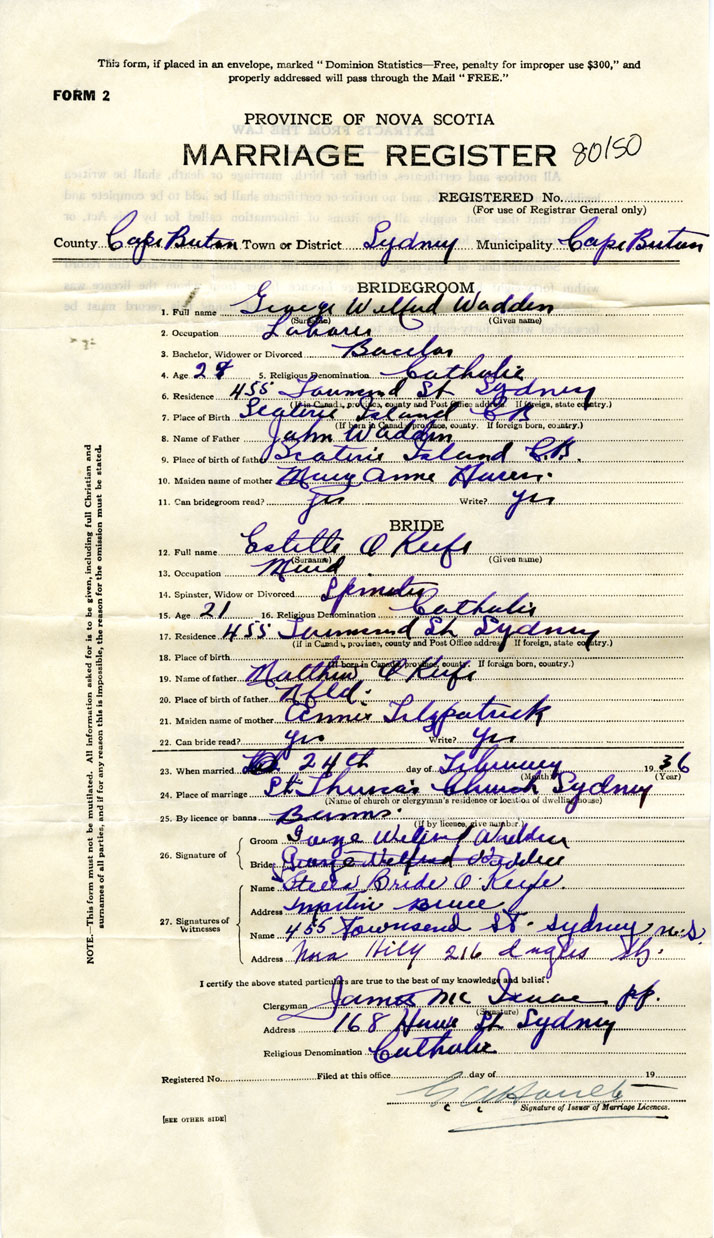 This form, if placed in an envelope, marked "Dominion Statistics—Free, penalty for improper use $300," and
properly addressed will pass through the Mail "FREE."
FORM 2
PROVINCE OF NOVA SCOTIA
MARRIAGE REGISTER 80150
REGISTERED No.
(For use of Registrar General only)
County Cape Breton Town or District Sydney Municipality Cape Breton
BRIDEGROOM
1. Full name George Wilfred Wadden
(Surname) (Given name)
2. Occupation Laborer
3. Bachelor, Widower or Divorced Bacelor
4. Age 28 5. Religious Denomination Catholic
6. Residence 455 Townsend St Sydney
(If in Canada, province, county and Post Office address. If foreign, state country.)
7. Place of Birth Scaterie Island CB
(If born in Canada province, county. If foreign born, country.)
8. Name of Father John Wadden
9. Place of birth of father Scaterie Island C.B.
10. Maiden name of mother Mary Anne
11. Can bridegroom read? yes Write? yes
BRIDE
12. Full name Estelle O Keefe
(Surname) (Given name)
13. Occupation Maid
14. Spinster, Widow or Divorced Spinster
15. Age 21 16. Religious Denomination Catholic
17. Residence 455 Townsend St Sydney
(If in Canada, province, county and Post Office address If foreign, state country.)
18. Place of birth
(If born in Canada province, county. If foreign born, country.)
19. Name of father Matthew O Keefe
20. Place of birth of father Nfld.
21. Maiden name of mother Annie Fitzpatrick
22. Can bride read? yes Write? yes
23. When married 24th day of February 1936
(Month) (Year)
24. Place of marriage St. Theresa's Church Sydney
(Name of church or clergyman's residence or location of dwelling house)
25. By licence or banns Banns
(If by licence, give number)
26. Signature of
Groom George Wilfred Wadden
Bride George Wilfred
Stella Bride O'Keefe.
27. Signatures of Witnesses
Name
Address Martin Bruce
Name 455 Townsend St. Sydney N.S.
Address Nora 216 St.
I certify the above stated particulars are true to the best of my knowledge and belief:
Clergyman James Mc Isaac pp.
(Signature)
Address 168 St Sydney
Religious Denomination Catholic
Registered No. Filed at this office day of 19
Signature of Issuer of Marriage Licences.
[SEE OTHER SIDE]
NOTE.—This form must not be mutilated. All information asked for is to be given, including full Christian and
surnames of all parties, and if for any reason this is impossible, the reason for the omission must be stated.